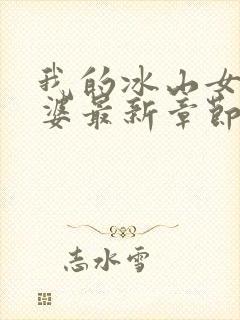 我的冰山女
婆最新章節
志水雪